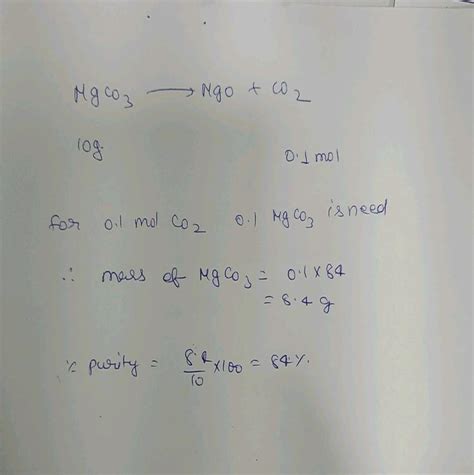 MgCO3 → MgO + CO2
10g. 0.1 mol
for 0.1 mol CO2 0.1 MgCO3 is need
∴ mass of MgCO3 = 0.1 × 84
= 8.4 g
% purity = 8.4/10 × 100 = 84%.